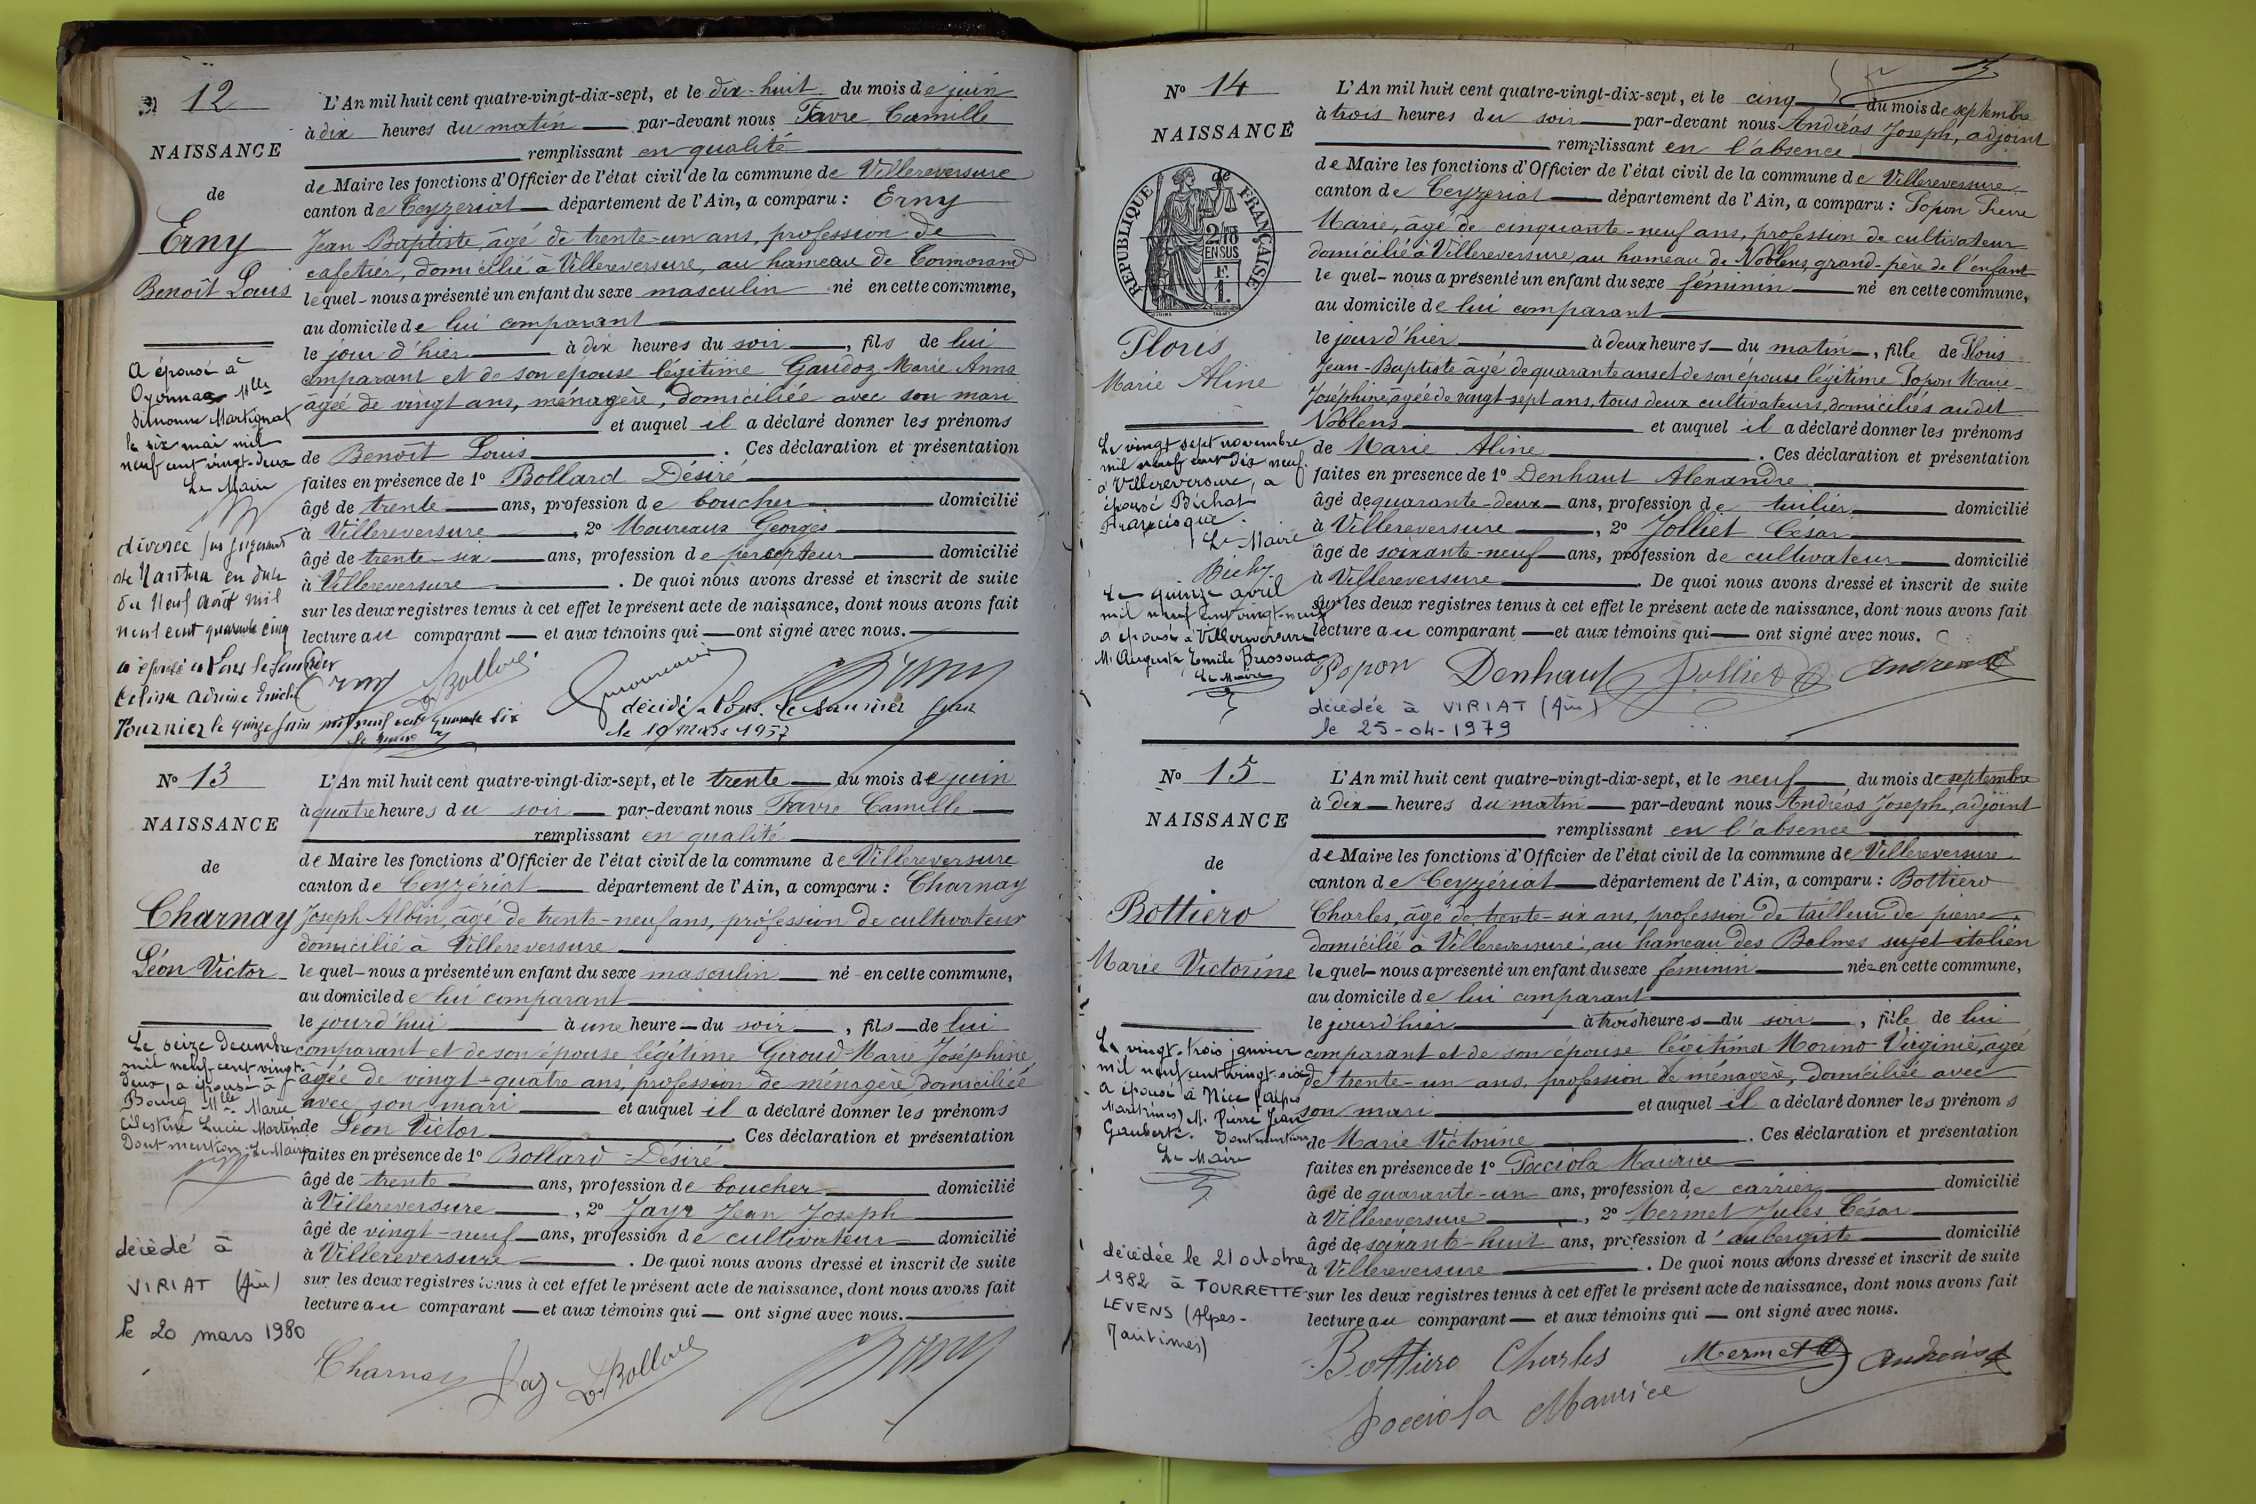 N° 12
NAISSANCE
de
Erny
Benoît Louis
L'An mil huit cent quatre-vingt-dix-sept, et le dix-huit du mois de juin
à dix heures du matin par-devant nous Favre Camille
remplissant en qualité
de Maire les fonctions d'Officier de l'état civil de la commune de Villereversure
canton de Ceyzeriat département de l'Ain, a comparu : Erny
Jean Baptiste, âgé de trente-un ans, profession de
cafetier, domicilié à Villereversure, au hameau de Cormorand
lequel-nous a présenté un enfant du sexe masculin né en cette commune,
au domicile de lui comparant
le jour d'hier à dix heures du soir, fils de lui
comparant et de son épouse légitime Gaudoz Marie Anna
âgée de vingt ans, ménagère, domiciliée avec son mari
et auquel il a déclaré donner les prénoms
de Benoît Louis. Ces déclaration et présentation
faites en présence de 1° Bollard Désiré
âgé de trente ans, profession de boucher domicilié
à Villereversure, 2° Moureaux Georges
âgé de trente-six ans, profession de percepteur domicilié
à Villereversure. De quoi nous avons dressé et inscrit de suite
sur les deux registres tenus à cet effet le présent acte de naissance, dont nous avons fait
lecture au comparant et aux témoins qui ont signé avec nous.
A épousé à
Oyonnax Mlle
Simonne Martignat
le six mai mil
neuf cent vingt-deux
Le Maire
divorcé
de Nantua en date
du Neuf août mil
neuf cent quarante cinq
a épousé à Lons le Saunier
Celina Adrienne
Tournier le quinze juin mil neuf cent quarante six
Erny D. Bollard
décédé à Lons le Saunier Jura
le 19 mars 1957
N° 13
NAISSANCE
de
Charnay
Léon Victor
L'An mil huit cent quatre-vingt-dix-sept, et le trente du mois de juin
à quatre heures du soir par-devant nous Favre Camille
remplissant en qualité
de Maire les fonctions d'Officier de l'état civil de la commune de Villereversure
canton de Ceyzériat département de l'Ain, a comparu : Charnay
Joseph Albin, âgé de trente-neuf ans, profession de cultivateur
domicilié à Villereversure
lequel-nous a présenté un enfant du sexe masculin né en cette commune,
au domicile de lui comparant
le jourd'hui à une heure du soir, fils de lui
comparant et de son épouse légitime Giroud Marie Joséphine
âgée de vingt-quatre ans, profession de ménagère, domiciliée
avec son mari et auquel il a déclaré donner les prénoms
de Léon Victor. Ces déclaration et présentation
faites en présence de 1° Bollard Désiré
âgé de trente ans, profession de boucher domicilié
à Villereversure, 2° Jayr Jean Joseph
âgé de vingt-neuf ans, profession de cultivateur domicilié
à Villereversure. De quoi nous avons dressé et inscrit de suite
sur les deux registres tenus à cet effet le présent acte de naissance, dont nous avons fait
lecture au comparant et aux témoins qui ont signé avec nous.
Le seize décembre
mil neuf cent vingt-
deux, a épousé à
Bourg Mlle Marie
Célestine Lucie Martin
Dont mention. Le Maire
décédé à
VIRIAT (Ain)
le 20 mars 1980
Charnay Jay D. Bollard
N° 14
NAISSANCE
de
RÉPUBLIQUE FRANÇAISE
2/10 EN SUS
Ploris
Marie Aline
L'An mil huit cent quatre-vingt-dix-sept, et le cinq du mois de septembre
à trois heures du soir par-devant nous Andréas Joseph, adjoint
remplissant en l'absence
de Maire les fonctions d'Officier de l'état civil de la commune de Villereversure
canton de Ceyzeriat département de l'Ain, a comparu : Popon Pierre
Marie, âgé de cinquante-neuf ans, profession de cultivateur
domicilié à Villereversure au hameau de Noblens, grand-père de l'enfant
lequel-nous a présenté un enfant du sexe féminin né en cette commune,
au domicile de lui comparant
le jour d'hier à deux heures du matin, fille de Ploris
Jean-Baptiste âgé de quarante ans et de son épouse légitime Popon Marie-
Joséphine, âgée de vingt-sept ans, tous deux cultivateurs, domiciliés au dit
Noblens et auquel il a déclaré donner les prénoms
de Marie Aline. Ces déclaration et présentation
faites en présence de 1° Denhaut Alexandre
âgé de quarante-deux ans, profession de tuilier domicilié
à Villereversure, 2° Jolliet César
âgé de soixante-neuf ans, profession de cultivateur domicilié
à Villereversure. De quoi nous avons dressé et inscrit de suite
sur les deux registres tenus à cet effet le présent acte de naissance, dont nous avons fait
lecture au comparant et aux témoins qui ont signé avec nous.
Le vingt sept novembre
mil neuf cent dix neuf
à Villereversure, a
épousé Bichat
Francisque.
Le Maire
Le quinze avril
mil neuf cent vingt-neuf
a épousé à Villereversure
M. Auguste Emile Brossard
Le Maire
Popon Denhaut Jolliet Andréas
décédée à VIRIAT (Ain)
le 25-04-1979
N° 15
NAISSANCE
de
Bottiero
Marie Victorine
L'An mil huit cent quatre-vingt-dix-sept, et le neuf du mois de septembre
à dix heures du matin par-devant nous Andréas Joseph, adjoint
remplissant en l'absence
de Maire les fonctions d'Officier de l'état civil de la commune de Villereversure
canton de Ceyzériat département de l'Ain, a comparu : Bottiero
Charles, âgé de trente-six ans, profession de tailleur de pierre,
domicilié à Villereversure, au hameau des Balmes sujet italien
lequel-nous a présenté un enfant du sexe féminin née en cette commune,
au domicile de lui comparant
le jourd'hier à trois heures du soir, fille de lui
comparant et de son épouse légitime Morino Virginie, âgée
de trente-un ans, profession de ménagère, domiciliée avec
son mari et auquel il a déclaré donner les prénoms
de Marie Victorine. Ces déclaration et présentation
faites en présence de 1° Pocciola Maurice
âgé de quarante-un ans, profession de carrier domicilié
à Villereversure, 2° Mermet Jules César
âgé de soixante-huit ans, profession d'aubergiste domicilié
à Villereversure. De quoi nous avons dressé et inscrit de suite
sur les deux registres tenus à cet effet le présent acte de naissance, dont nous avons fait
lecture au comparant et aux témoins qui ont signé avec nous.
Le vingt-trois janvier
mil neuf cent vingt-six
a épousé à Nice (Alpes
Maritimes) M. Pierre Jean
Gauberti. Dont mention
Le Maire
décédée le 21 octobre
1982 à TOURRETTE
LEVENS (Alpes-
Maritimes)
Bottiero Charles Mermet Andréas
Pocciola Maurice